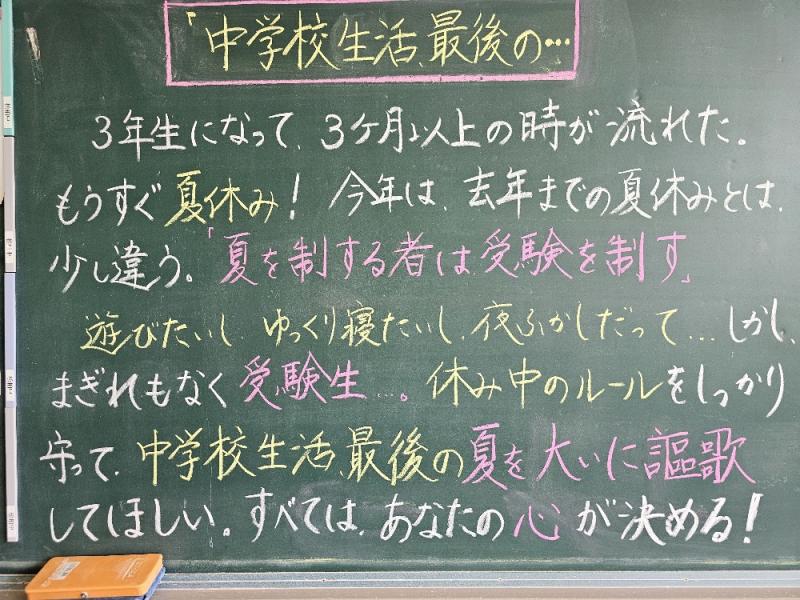 「中学校生活、最後の…
3年生になって、3ケ月以上の時が流れた。
もうすぐ夏休み！今年は、去年までの夏休みとは、
少し違う。「夏を制する者は受験を制す」
遊びたいし、ゆっくり寝たいし、夜ふかしだって…しかし、
まぎれもなく受験生…。休み中のルールをしっかり
守って、中学校生活、最後の夏を大いに謳歌
してほしい。すべては、あなたの心が決める！